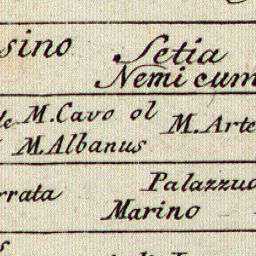 sino Setia
Nemi cum
M. Cavo ol M. Arte
M. Albanus
rrata Palazzuo
Marino